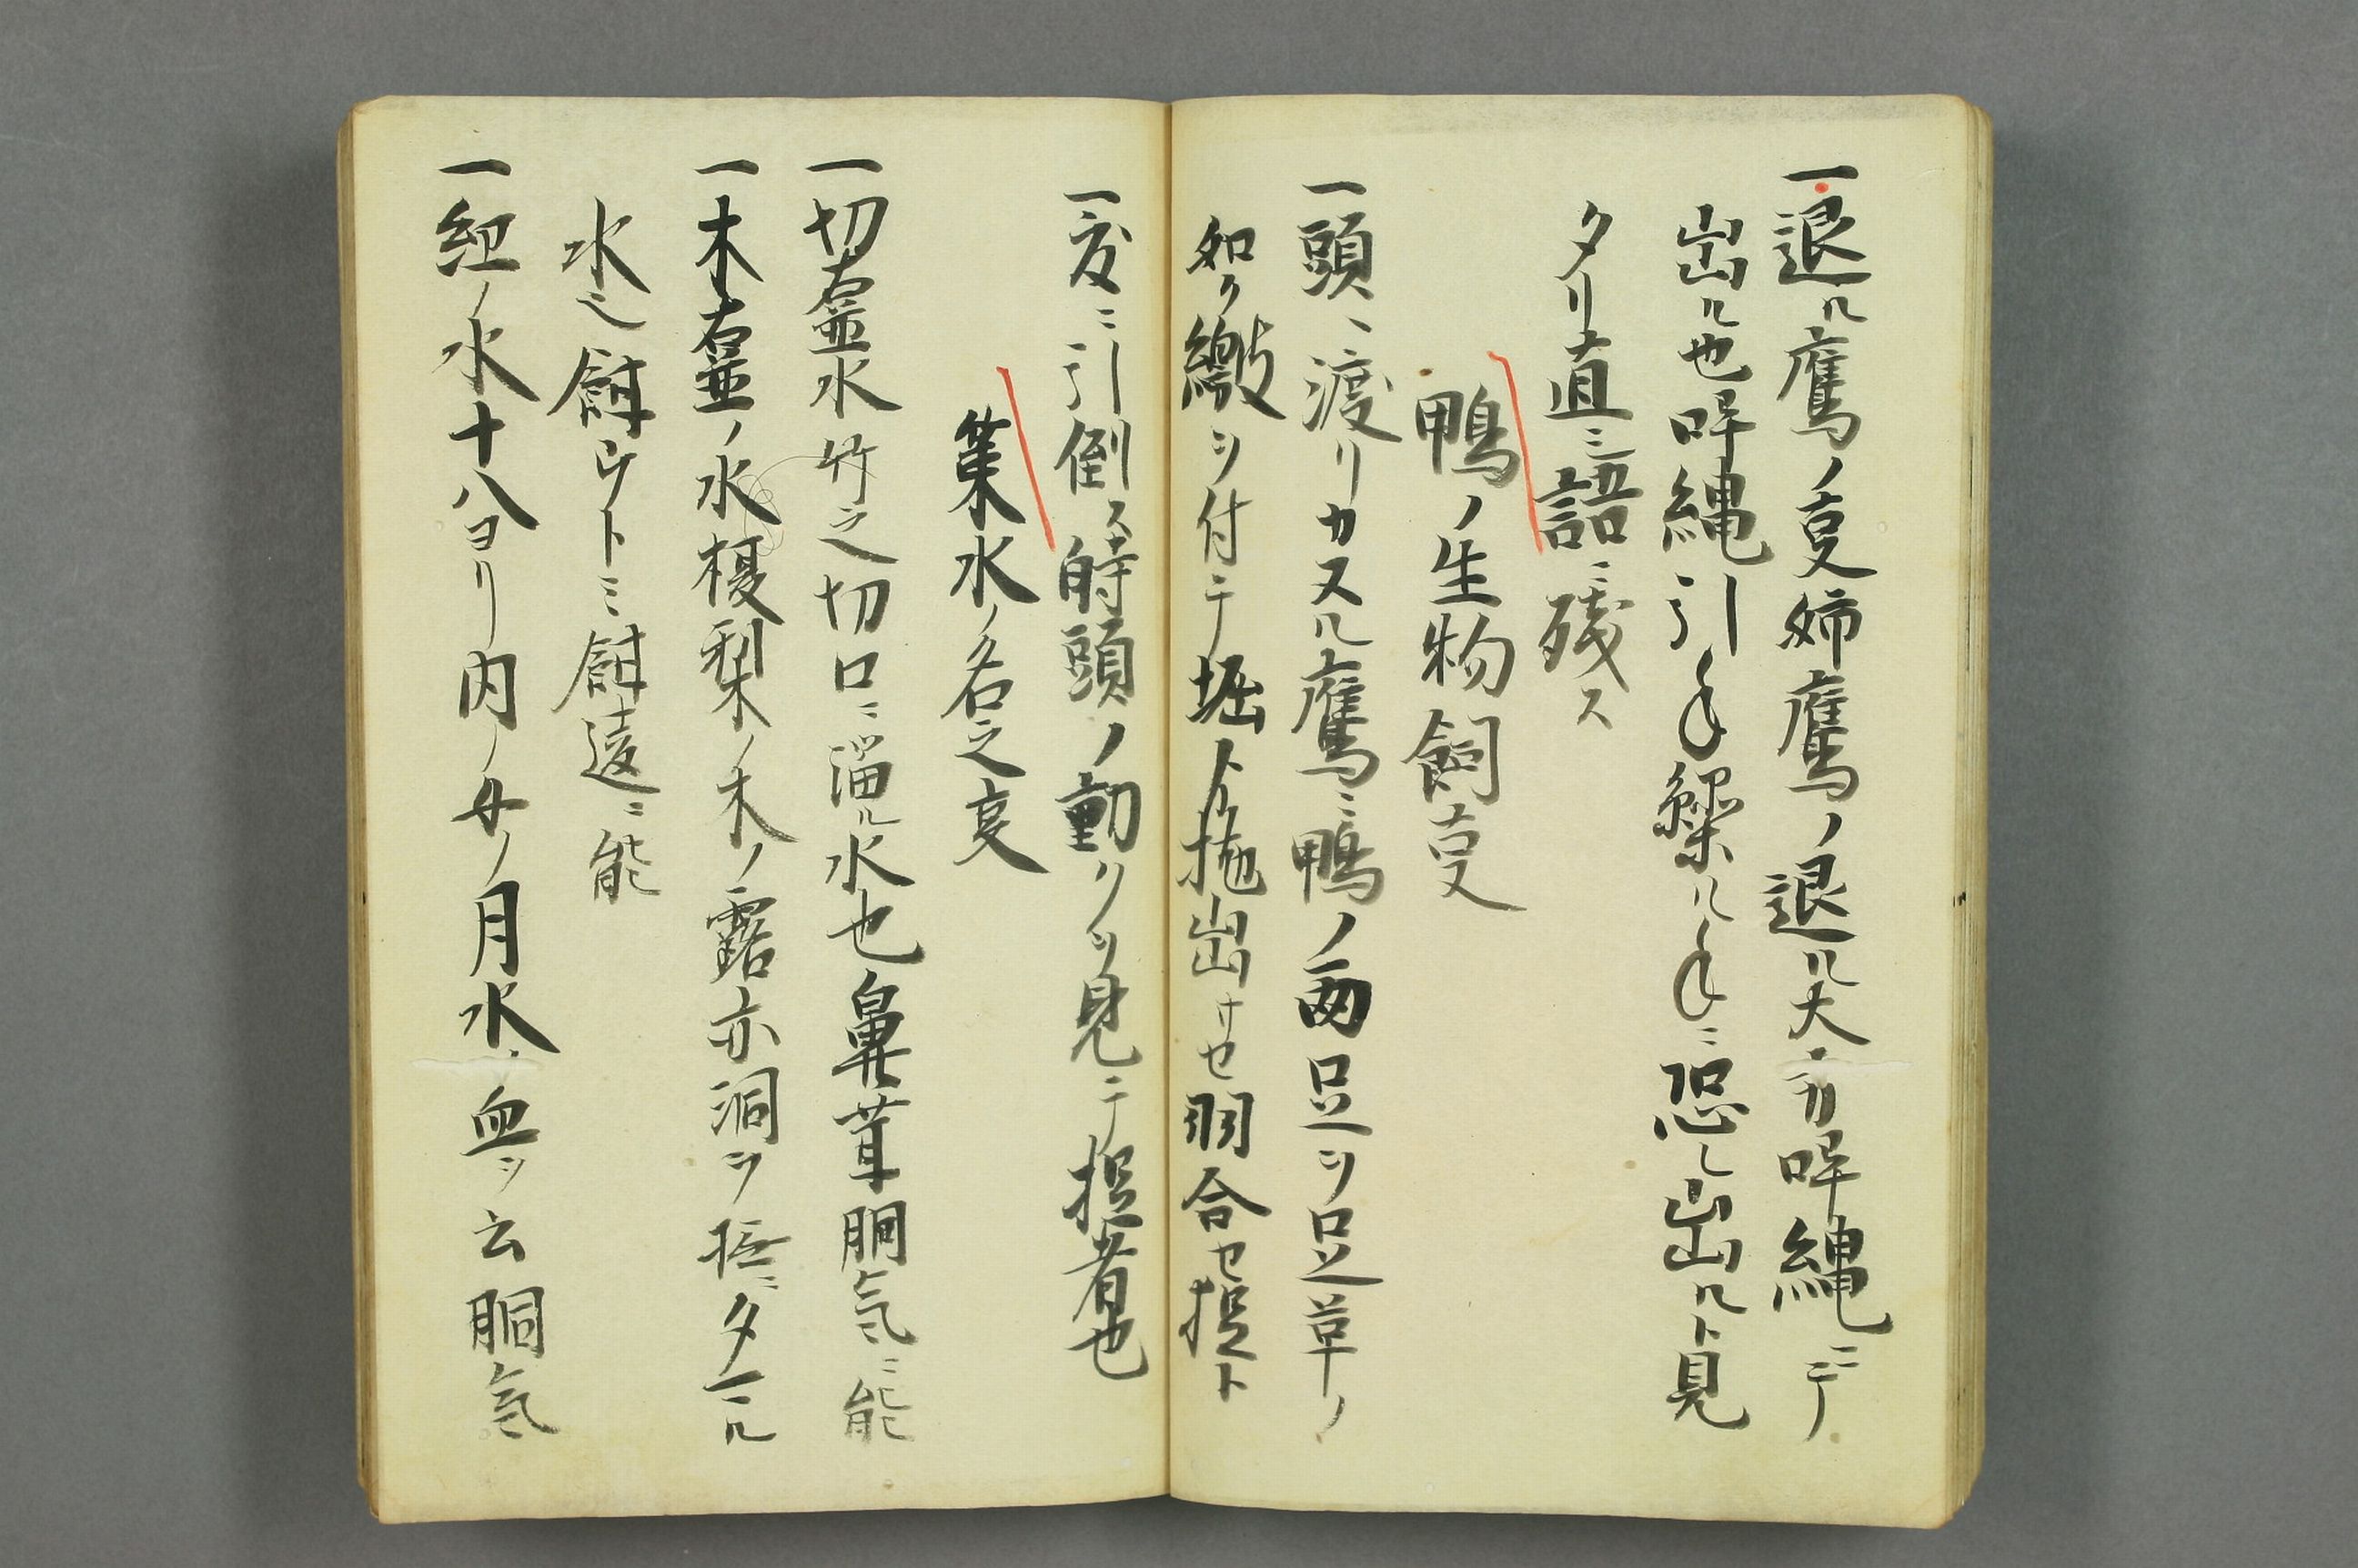 一退ル鷹ノ㕝姉鷹ノ退ル大方呼縄ニテ
出ル也呼縄引手繰ル手ニ恐レ出ルト見
タリ直ニ語ニ残ス
鴨ノ生物飼㕝
一頭ニ渡リカヌル鷹ニ鴨ノ両足ヲ足革ノ
如ク繳ヲ付テ堀ト拖出サセ羽合セ捉ト
一爰ニ引倒ス時頭ノ動クヲ見テ捉者也
薬水ノ名之㕝
一切霊水竹之切口ニ溜ル水也鼻茸胴気ニ能
一木霊ノ水榎梨ノ木ノ露亦洞ヲ タマル
水也餌ウトミ餌遠ニ能
一紅ノ水十八ヨリ内ノ女ノ月水血ヲ云胴気